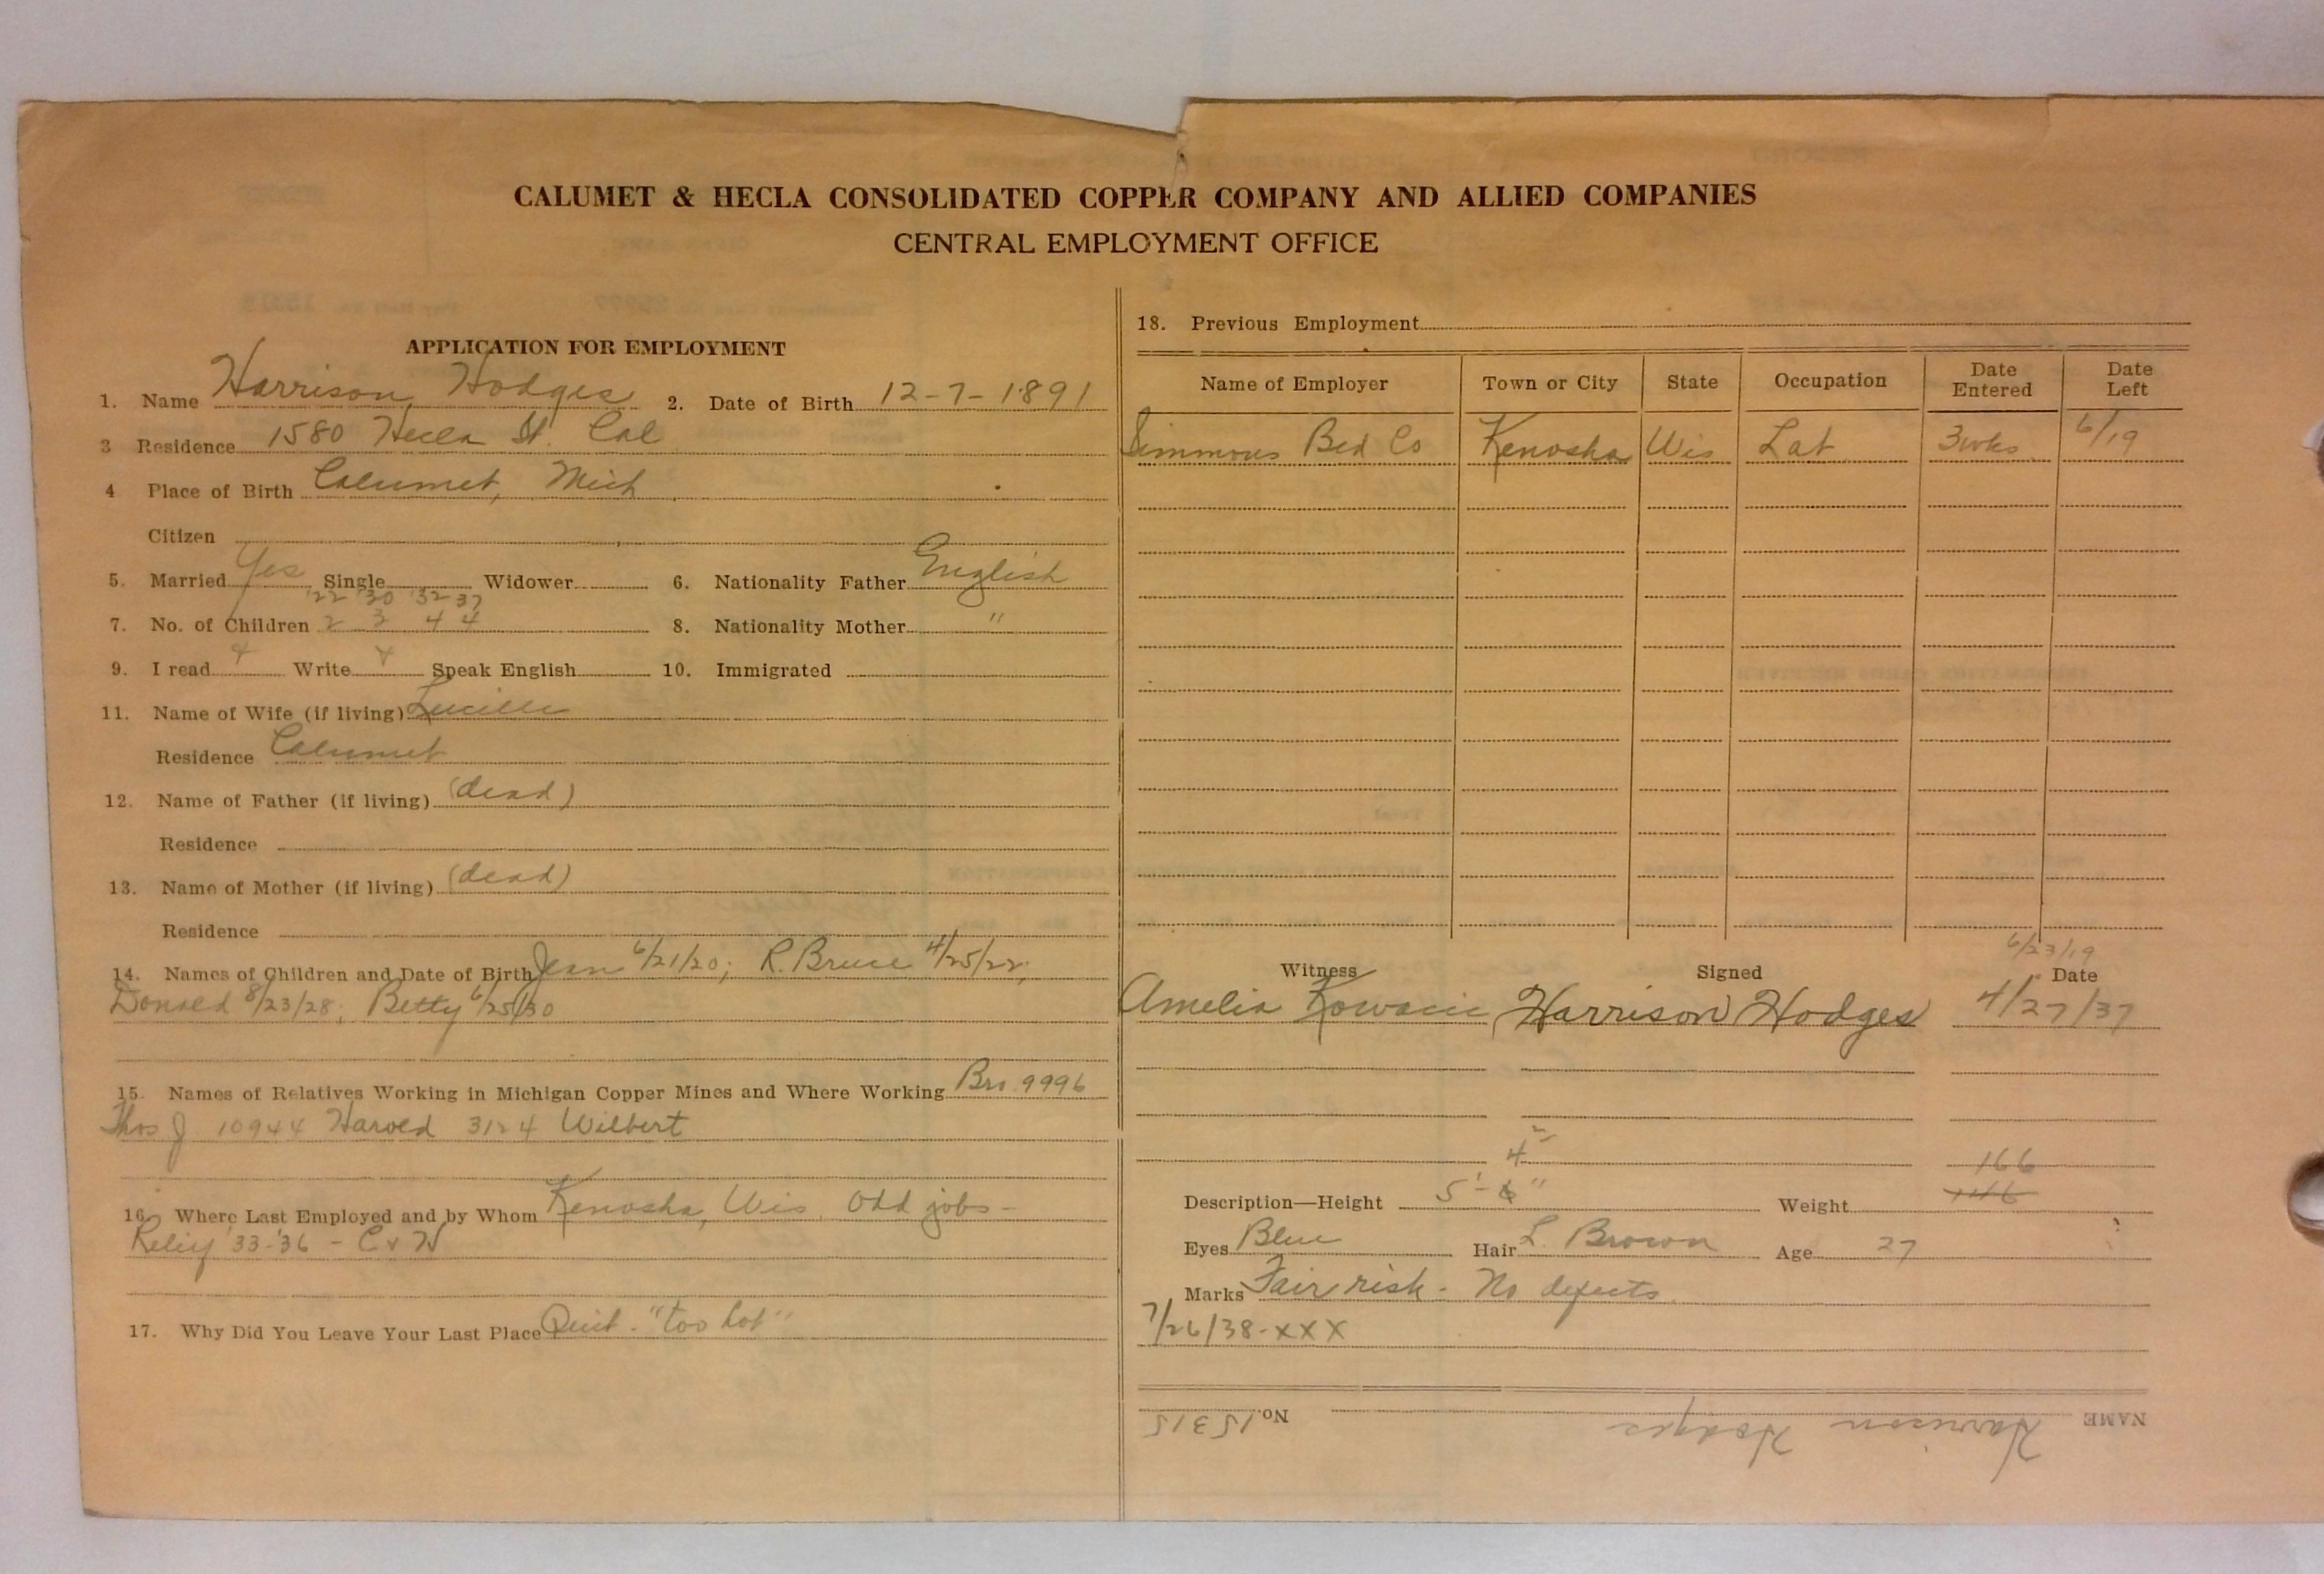 CALUMET & HECLA CONSOLIDATED COPPER COMPANY AND ALLIED COMPANIES
CENTRAL EMPLOYMENT OFFICE
APPLICATION FOR EMPLOYMENT
1. Name Harrison Hodges 2. Date of Birth 12-7-1891
3 Residence 1580 Hecla St. Cal
4 Place of Birth Calumet, Mich
Citizen
5. Married Yes Single Widower 6. Nationality Father English
'22 '30 '32 37
7. No. of Children 2 3 4 4 8. Nationality Mother "
9. I read Write Speak English 10. Immigrated
11. Name of Wife (if living) Lucille
Residence Calumet
12. Name of Father (if living) (dead)
Residence
13. Name of Mother (if living) (dead)
Residence
14. Names of Children and Date of Birth Jean 6/21/20; R. Bruce 4/25/22;
Donald 8/23/28; Betty 6/25/30
15. Names of Relatives Working in Michigan Copper Mines and Where Working Bro. 9996
Thos J. 10944 Harold 3124 Wilbert
16. Where Last Employed and by Whom Kenosha, Wis. Odd jobs -
Relief '33-'36 - C & H
17. Why Did You Leave Your Last Place Quit - "too hot"
18. Previous Employment
Name of Employer Town or City State Occupation Date Entered Date Left
Simmons Bed Co Kenosha Wis Lab 3 wks 6/19
6/23/19
Witness Signed Date
Amelia Harrison Hodges 4/27/37
4 166
Description—Height 5'-6" Weight 146
Eyes Blue Hair L. Brown Age 27
Marks Fair risk - No defects
7/26/38-XXX
NAME Harrison Hodges No. 15315